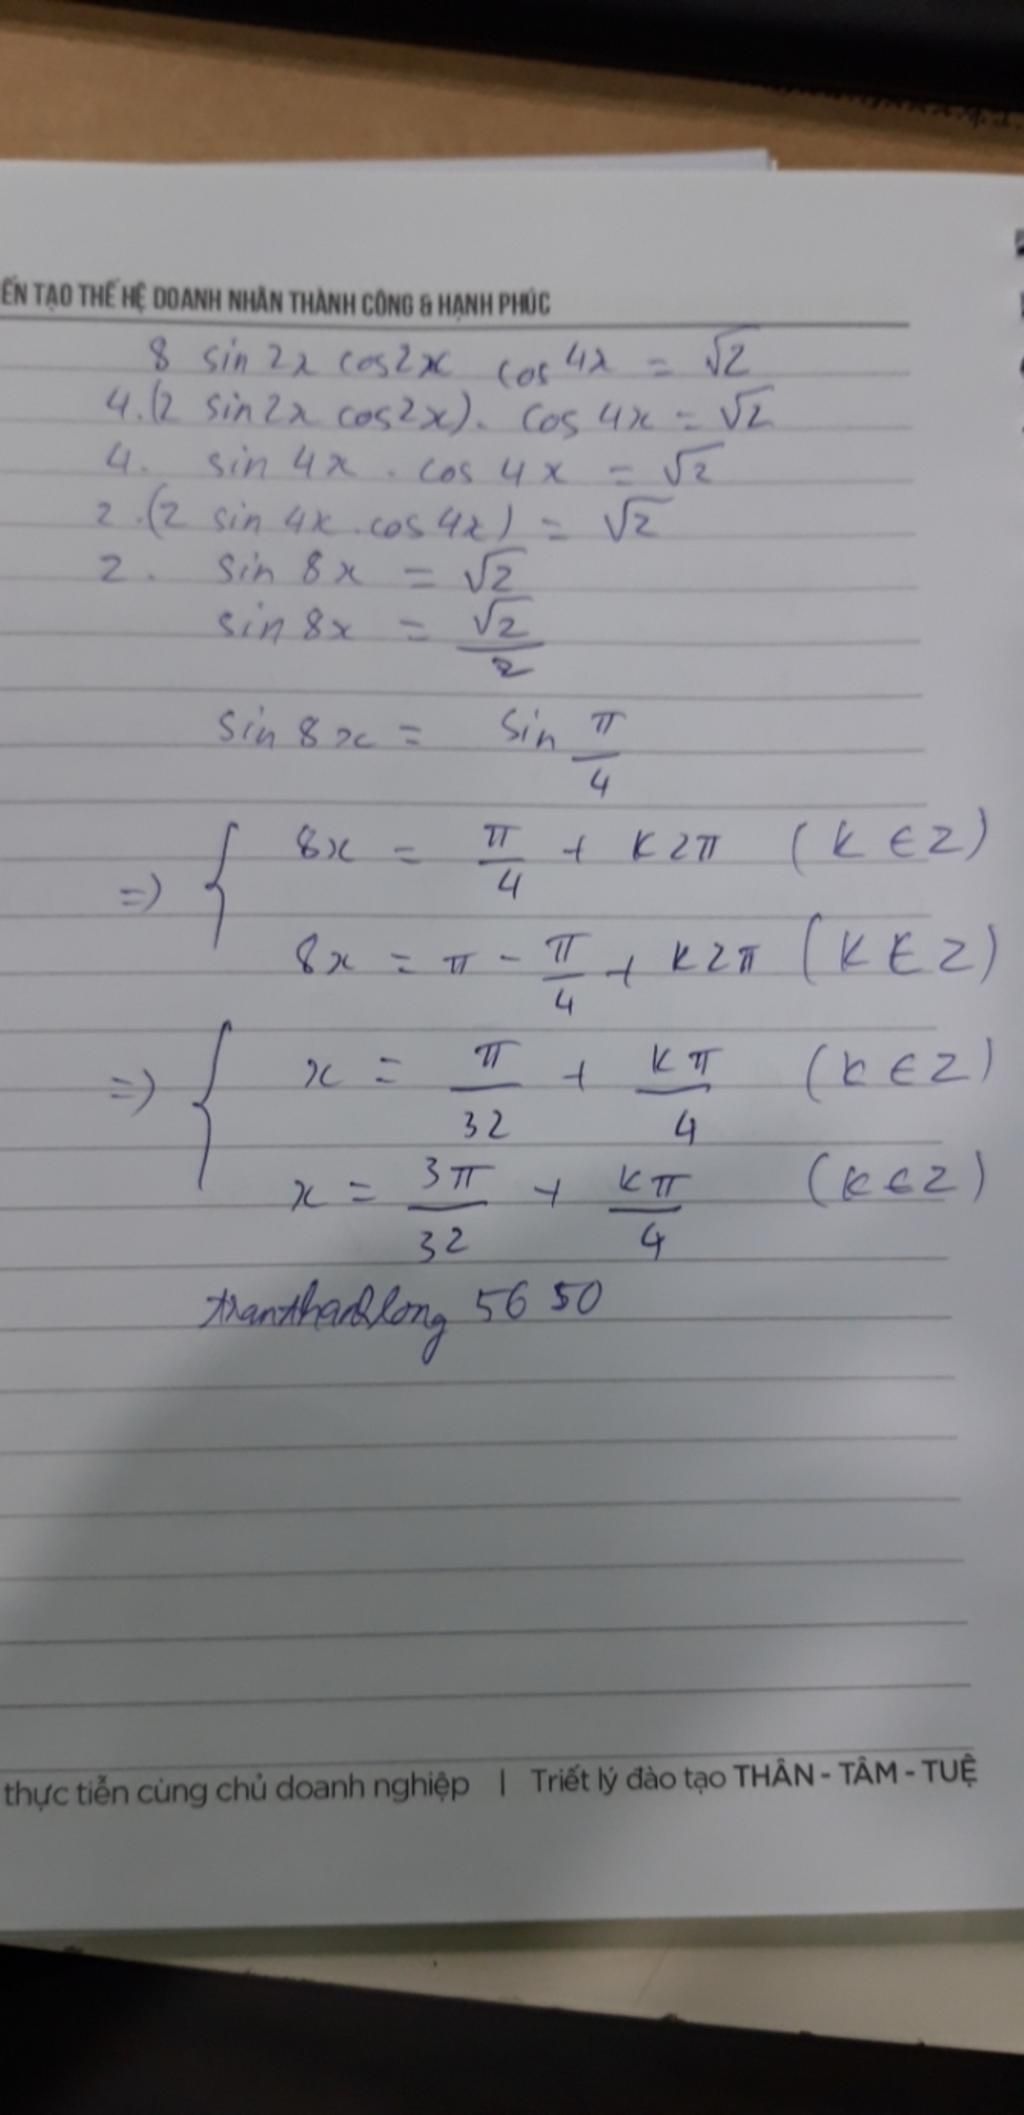 ẾN TẠO THẾ HỆ DOANH NHÂN THÀNH CÔNG & HẠNH PHÚC
8 sin 2x cos2x cos 4x = √2
4.(2 sin 2x cos2x). cos 4x = √2
4. sin 4x . cos 4x = √2
2.(2 sin 4x.cos 4x) = √2
2. sin 8x = √2
sin 8x = √2/2
sin 8x = sin π/4
=> { 8x = π/4 + k2π (k ∈ Z)
8x = π - π/4 + k2π (k ∈ Z)
=> { x = π/32 + kπ/4 (k ∈ Z)
x = 3π/32 + kπ/4 (k ∈ Z)
tranthanhlong 5650
thực tiễn cùng chủ doanh nghiệp | Triết lý đào tạo THÂN - TÂM - TUỆ